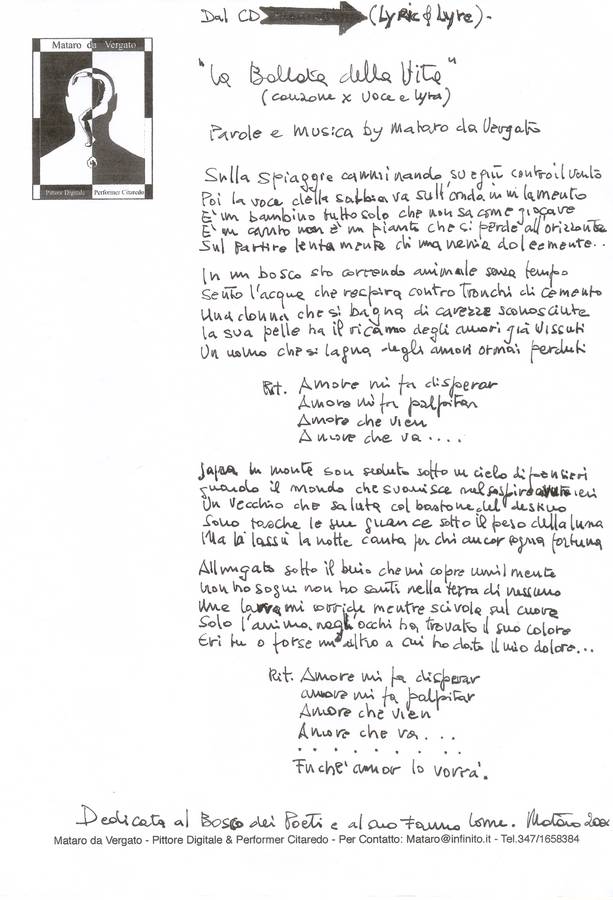 Dal CD (Lyric & Lyre)-
Mataro da Vergato
Pittore Digitale Performer Citaredo
"La Ballata della Vita"
(canzone x voce e lyra)
Parole e Musica by Mataro da Vergato
Sulla spiaggie camminando su e giù contro il vento
Poi la voce della sabbia va sull'onda in un lamento
È un bambino tutto solo che non sa come giocare
È un canto non è un pianto che si perde all'orizzonte
Sul partire lentamente di una nenia dolcemente..
In un bosco sto correndo animale senza tempo
Sento l'acqua che respira contro tronchi di cemento
Una donna che si bagna di carezze sconosciute
la sua pelle ha il ricamo degli amori già vissuti
Un uomo che si lagna degli amori ormai perduti
Rit. Amore mi fa disperar
Amore mi fa palpitar
Amore che vien
Amore che va....
Sopra un monte son seduto sotto un cielo di pensieri
guardo il mondo che svanisce nel sospiro ieri
Un vecchio che saluta col bastone del destino
Sono tasche le sue guance sotto il peso della luna
Ma là lassù la notte canta per chi ancor sogna fortuna
Allungato sotto il buio che mi copre umilmente
non ho sogni non ho santi nella terra di nessuno
Una larva mi sorride mentre scivola sul cuore
Solo l'anima negli occhi ha trovato il suo colore
Eri tu o forse un'altro a cui ho dato il mio dolore...
Rit. Amore mi fa disperar
amore mi fa palpitar
Amore che vien
Amore che va...
.........
Finchè amor lo vorrà.
Dedicata al Bosco dei Poeti e al suo Fauno Lome. Mataro
Mataro da Vergato - Pittore Digitale & Performer Citaredo - Per Contatto: Mataro@infinito.it - Tel.347/1658384